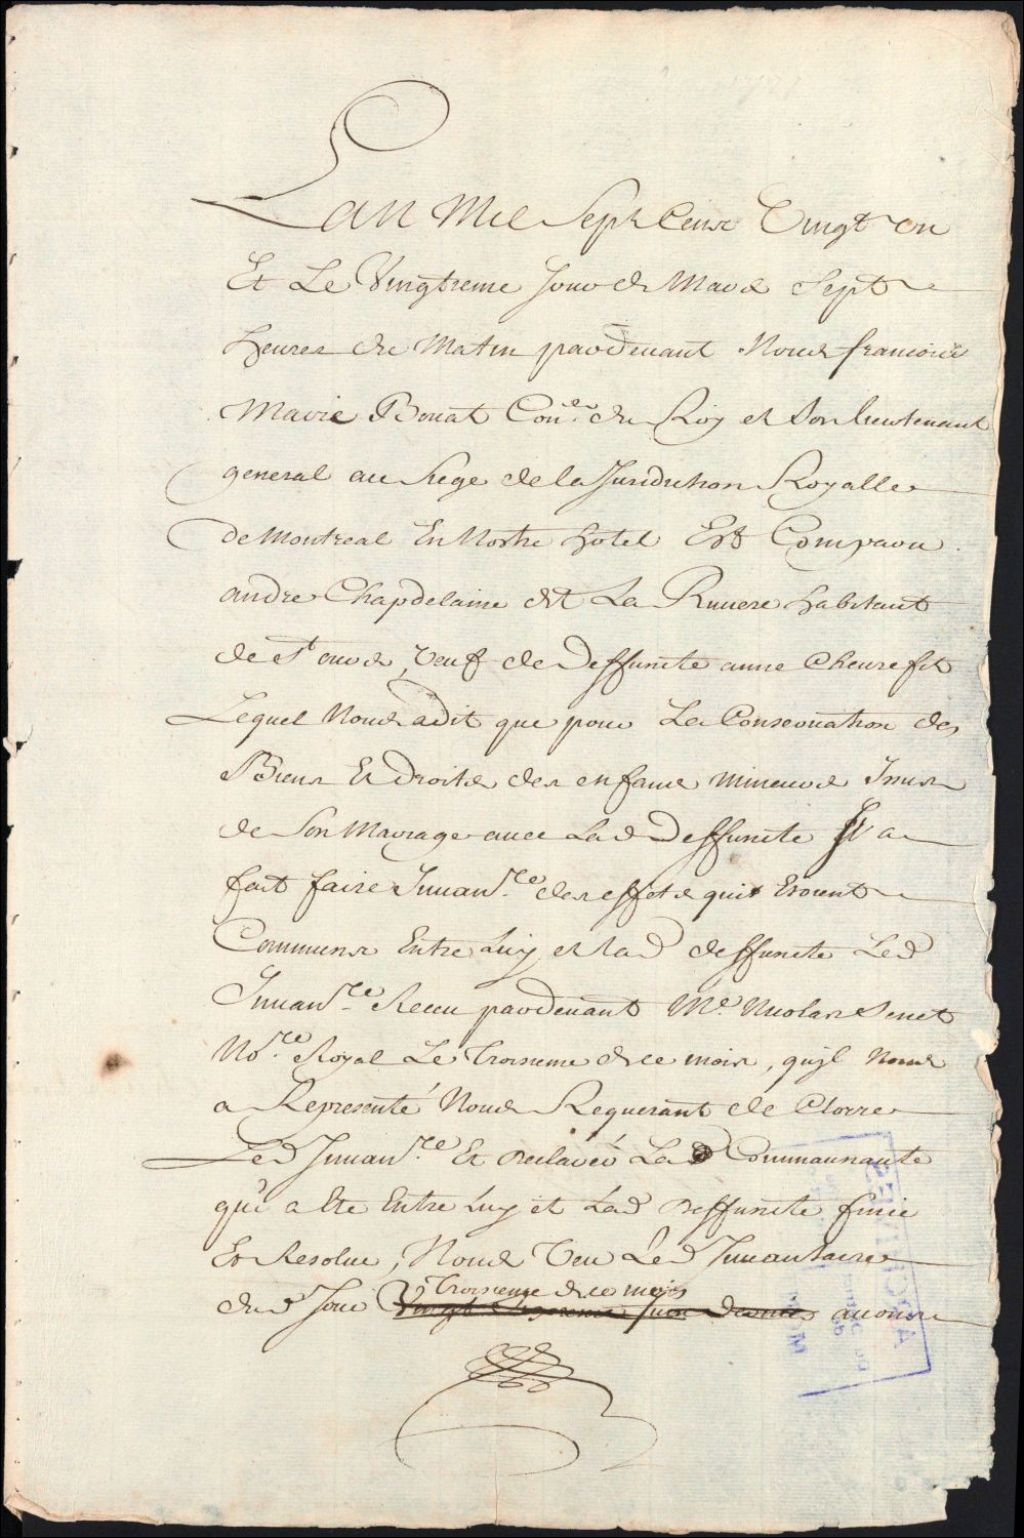 Lan Mil Sept Cens Vingt un
Et Le Vingtieme Jour de Mars Sept
heures du Matin pardevant Nous francois
Marie Bouat Con.er du Roy et Son lieutenant
general au Siege de la Juridiction Royalle
de Montreal En Nostre hotel Est Comparu
andre Chapdelaine dit La Riviere habitant
de St ours Veuf de Deffuncte anne Chevrefils
Lequel Nous a dit que pour La Conservation des
Biens Et droits des enfans mineurs Issus
de Son Mariage avec Lad Deffuncte Il a
fait faire Invan.re des effets qui Etoient
Communs Entre Luy et lad deffuncte Led
Invan.re Receu pardevant Me. Nicolas Senet
No.re Royal Le Troisieme de ce mois, quil Nous
a Representé Nous Requerant de Clorre
Led Invan.re Et declarer Lad Communauté
qui a Ete Entre Luy et Lad deffuncte finie
Et Resolue, Nous Veu Led Invantaire
Troisieme de ce mois
dud Jour avons